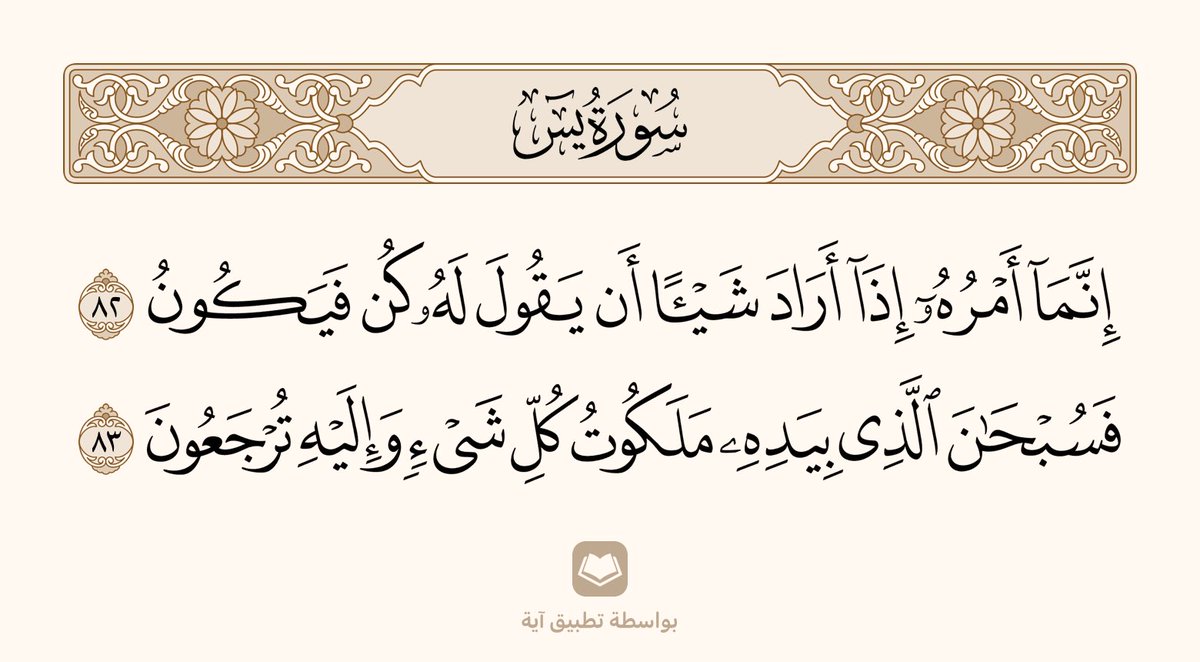 سُورَةُ يسٓ
إِنَّمَآ أَمْرُهُۥٓ إِذَآ أَرَادَ شَيْـًٔا أَن يَقُولَ لَهُۥ كُن فَيَكُونُ ٨٢
فَسُبْحَٰنَ ٱلَّذِى بِيَدِهِۦ مَلَكُوتُ كُلِّ شَىْءٍ وَإِلَيْهِ تُرْجَعُونَ ٨٣
بواسطة تطبيق آية